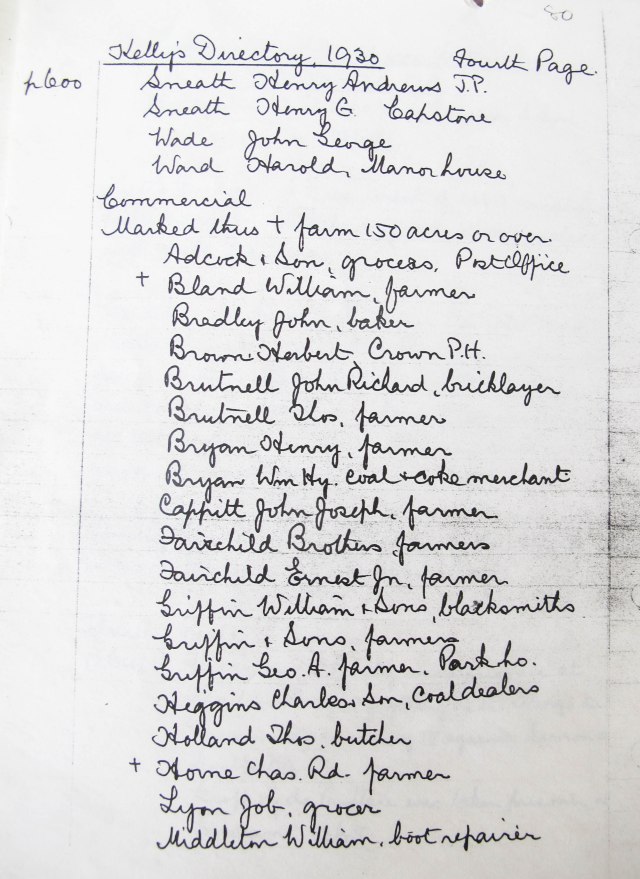 80
Kelly's Directory, 1930 Fourth Page.
p600 Sneath Henry Andrews J.P.
Sneath Henry G. Capstone
Wade John George
Ward Harold, Manor house
Commercial
Marked thus + farm 150 acres or over
Adcock & Son, grocers, Post Office
+ Bland William, farmer
Bradley John, baker
Brown Herbert, Crown P.H.
Brutnell John Richard, bricklayer
Brutnell Thos, farmer
Bryan Henry, farmer
Bryan Wm Hy. coal & coke merchant
Cappitt John Joseph, farmer
Fairchild Brothers, farmers
Fairchild Ernest Jn, farmer
Griffin William & Sons, blacksmiths
Griffin & Sons, farmers
Griffin Geo. A. farmer, Park ho.
Heggins Charles & Son, Coal dealers
Holland Thos. butcher
+ Horne Chas. Rd. farmer
Lyon Job, grocer
Middleton William, boot repairer